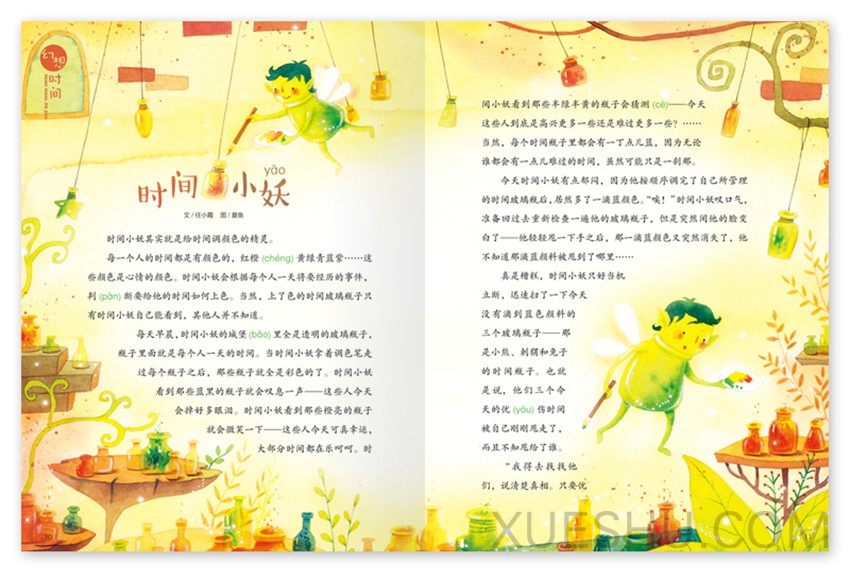 幻想
时间
时间小妖
yāo
文/任小霞 图/夏鱼
时间小妖其实就是给时间调颜色的精灵。
每一个人的时间都是有颜色的,红橙(chéng)黄绿青蓝紫……这
些颜色是心情的颜色。时间小妖会根据每个人一天将要经历的事件,
判(pàn)断要给他的时间如何上色。当然,上了色的时间玻璃瓶子只
有时间小妖自己能看到,其他人并不知道。
每天早晨,时间小妖的城堡(bǎo)里全是透明的玻璃瓶子,
瓶子里面就是每个人一天的时间。当时间小妖拿着调色笔走
过每个瓶子之后,那些瓶子就全是彩色的了。时间小妖
看到那些蓝里的瓶子就会叹息一声——这些人今天
会掉好多眼泪。时间小妖看到那些橙亮的瓶子
就会微笑一下——这些人今天可真幸运,
大部分时间都在乐呵呵。时
10
间小妖看到那些半绿半黄的瓶子会猜测(cè)——今天
这些人到底是高兴更多一些还是难过更多一些?……
当然,每个时间瓶子里都会有一丁点儿蓝,因为无论
谁都会有一点儿难过的时间,虽然可能只是一刹那。
今天时间小妖有点郁闷,因为他按顺序调完了自己所管理
的时间玻璃瓶后,居然多了一滴蓝颜色。“唉!”时间小妖叹口气,
准备回过去重新检查一遍他的玻璃瓶子,但是突然间他的脸变
白了——他轻轻甩一下手之后,那一滴蓝颜色又突然消失了,他
不知道那滴蓝颜料被甩到了哪里……
真是糟糕,时间小妖只好当机
立断,迅速扫了一下今天
没有滴到蓝色颜料的
三个玻璃瓶子——那
是小熊、刺猬和兔子
的时间瓶子。也就
是说,他们三个今
天的忧(yōu)伤时间
被自己刚刚甩走了,
而且不知甩给了谁。
“我得去找找他
们,说清楚真相。只要忧
XUESHU.COM